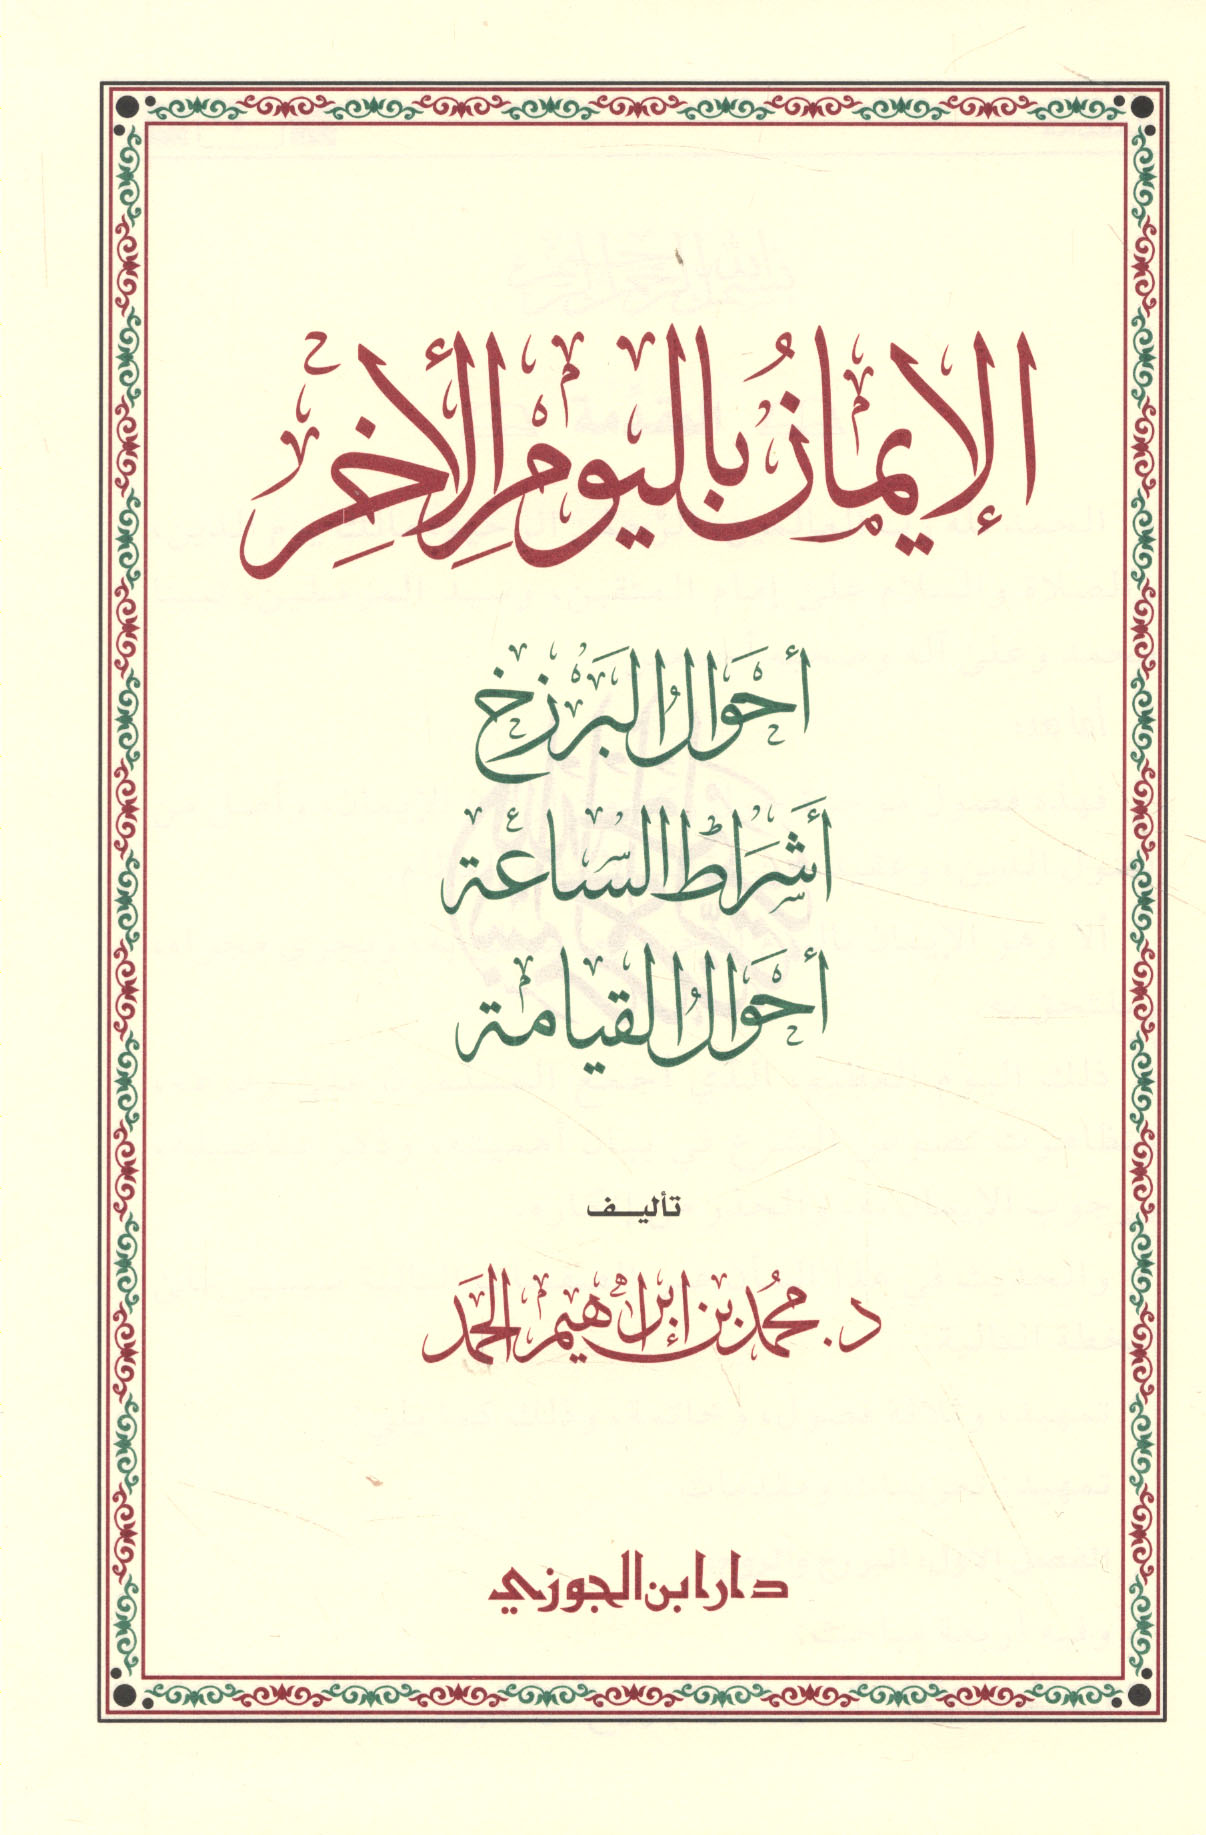 الإيمانُ باليومِ الأخِرِ
أحْوَالُ البَرْزخ
أشْرَاطُ السَّاعَة
أحْوَالُ القيامَة
تأليف
د. محمَّد بن إبراهيم الحمَد
دار ابن الجوزي